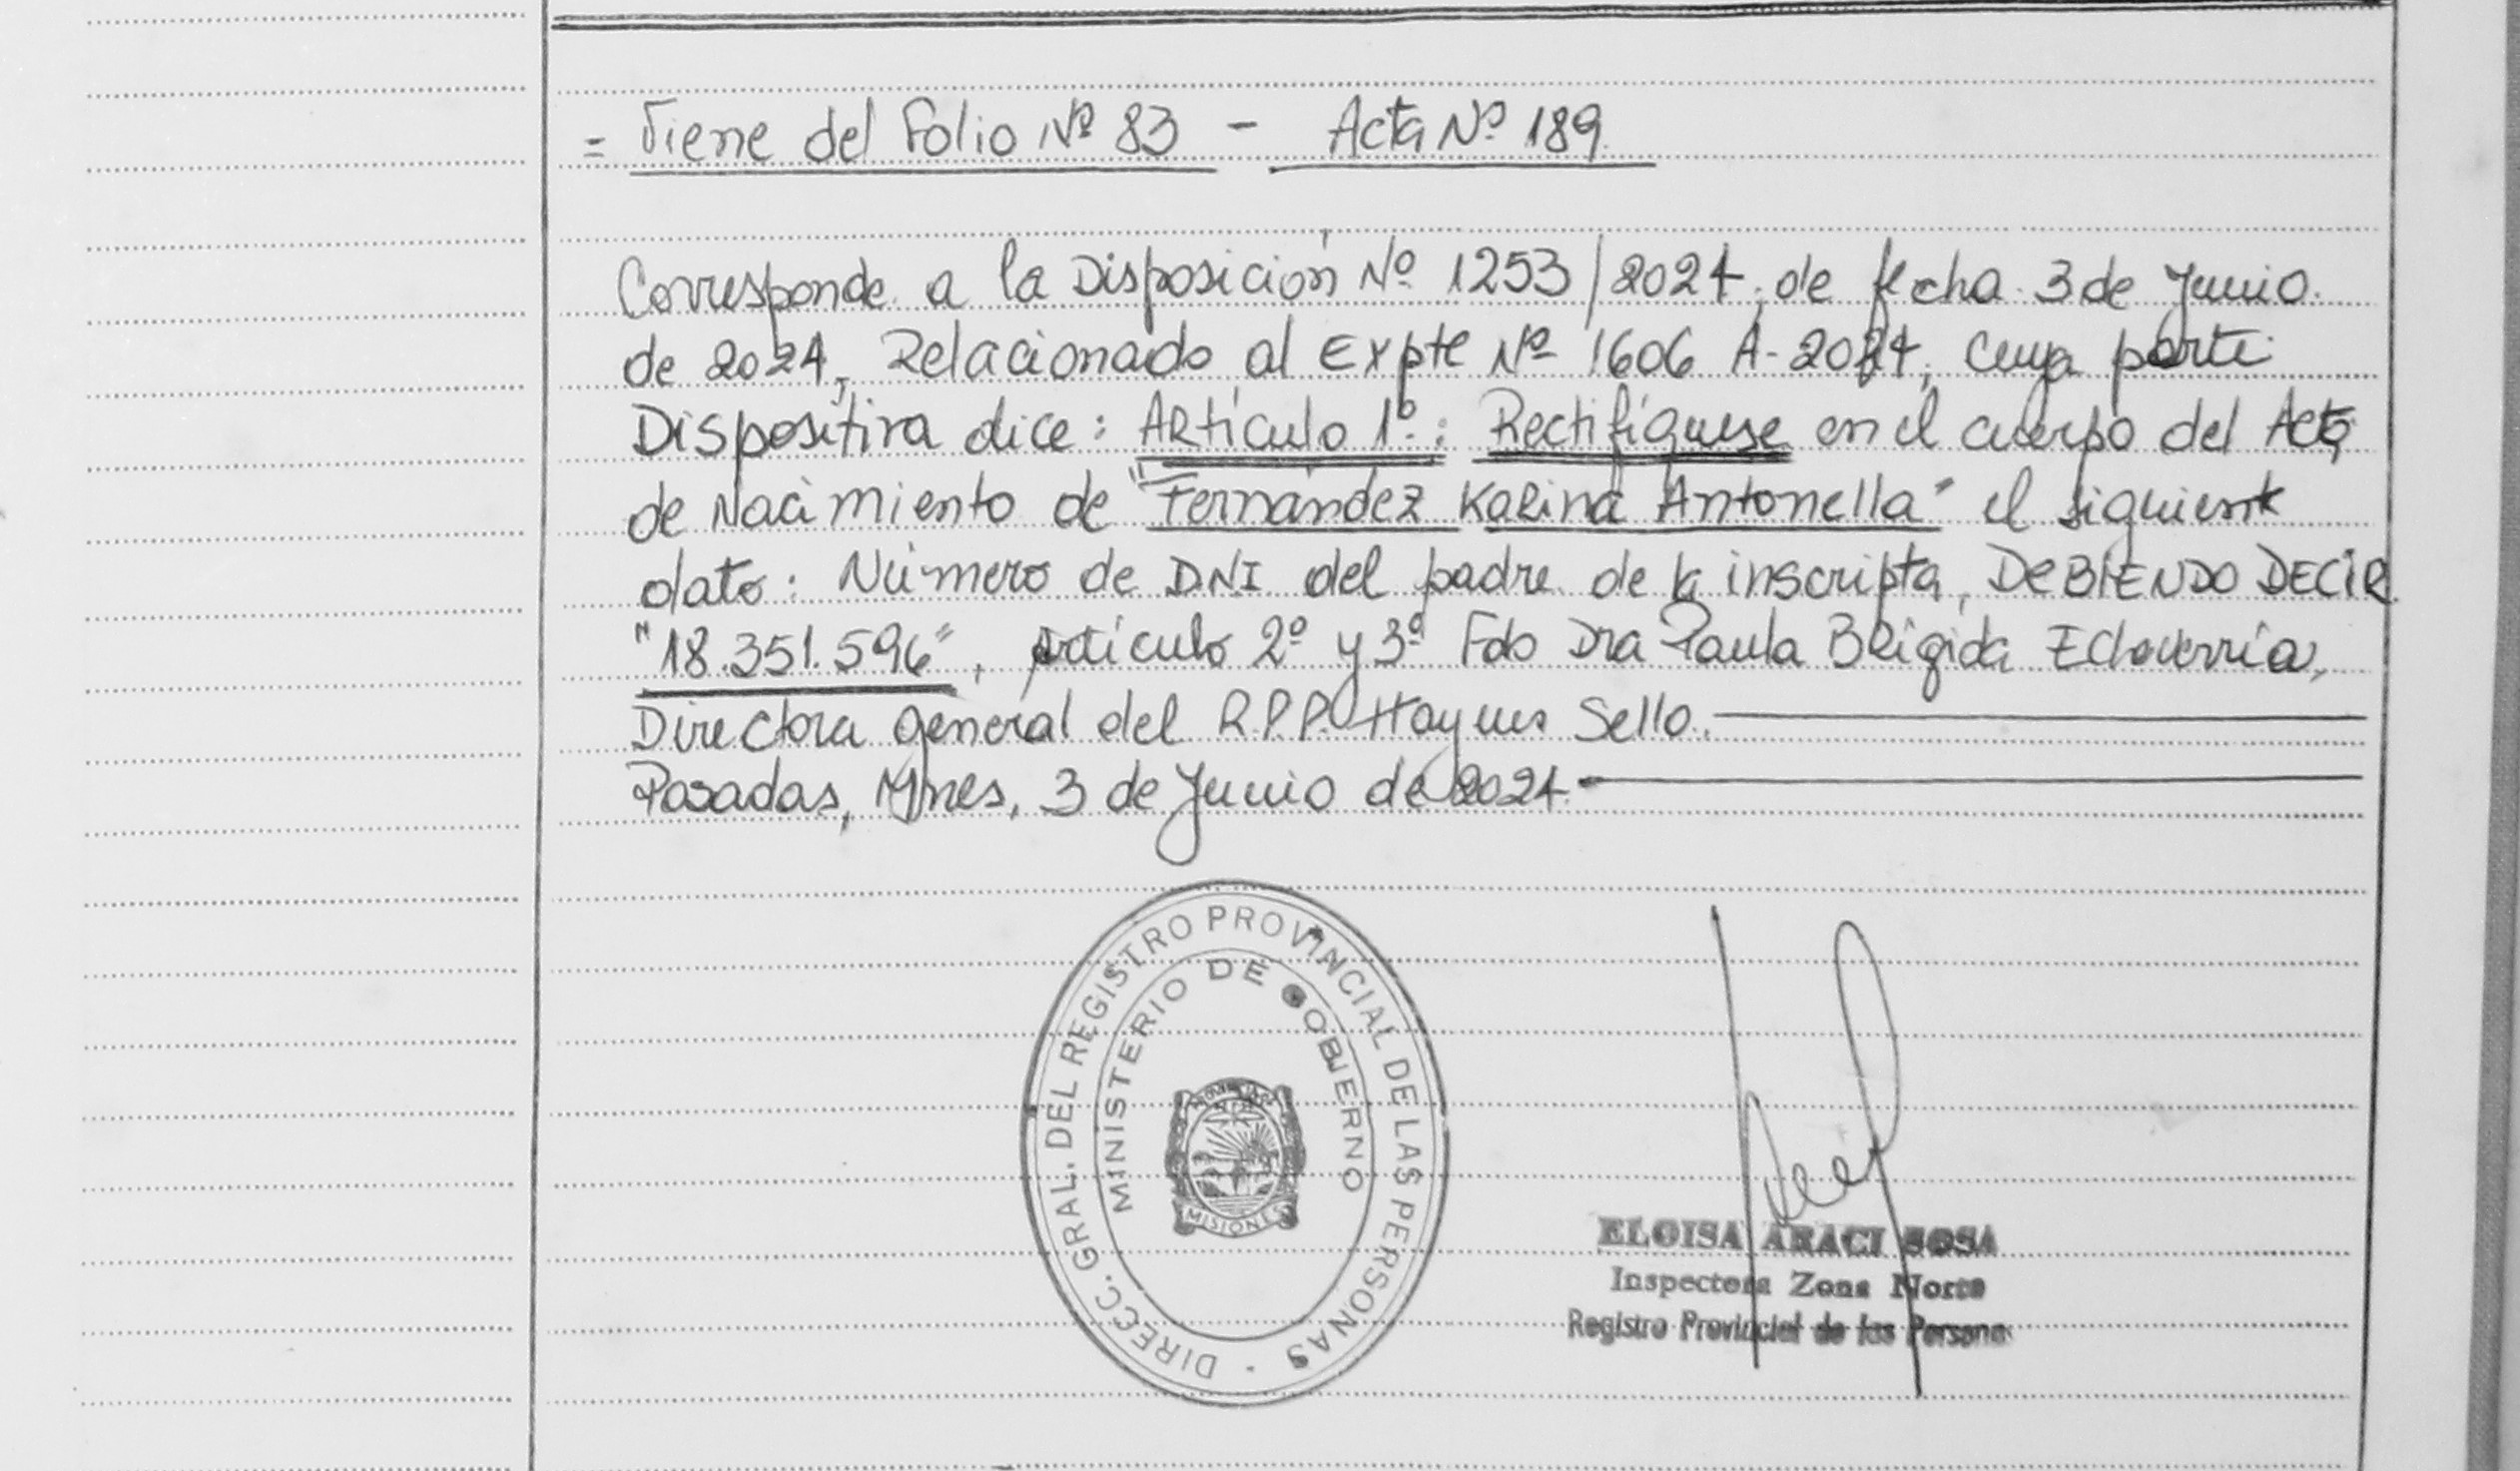 = Viene del Folio Nº 83 - Acta Nº 189.
Corresponde a la Disposición Nº 1253/2024, de fecha 3 de Junio
de 2024, Relacionado al Expte Nº 1606 A-2024, cuya parte
Dispositiva dice: Artículo 1º: Rectifíquese en el cuerpo del Acta
de Nacimiento de "Fernández Karina Antonella" el siguiente
dato: Número de DNI del padre de la inscripta, DEBIENDO DECIR
"18.351.596", artículo 2º y 3º Fdo Dra Paula Brigida Echeverría,
Directora general del R.P.P. Hay un Sello.
Posadas, Mnes, 3 de Junio de 2024.
DIRECC. GRAL. DEL REGISTRO PROVINCIAL DE LAS PERSONAS
MINISTERIO DE GOBIERNO
MISIONES
ELOISA ARACI SOSA
Inspectora Zona Norte
Registro Provincial de las Personas